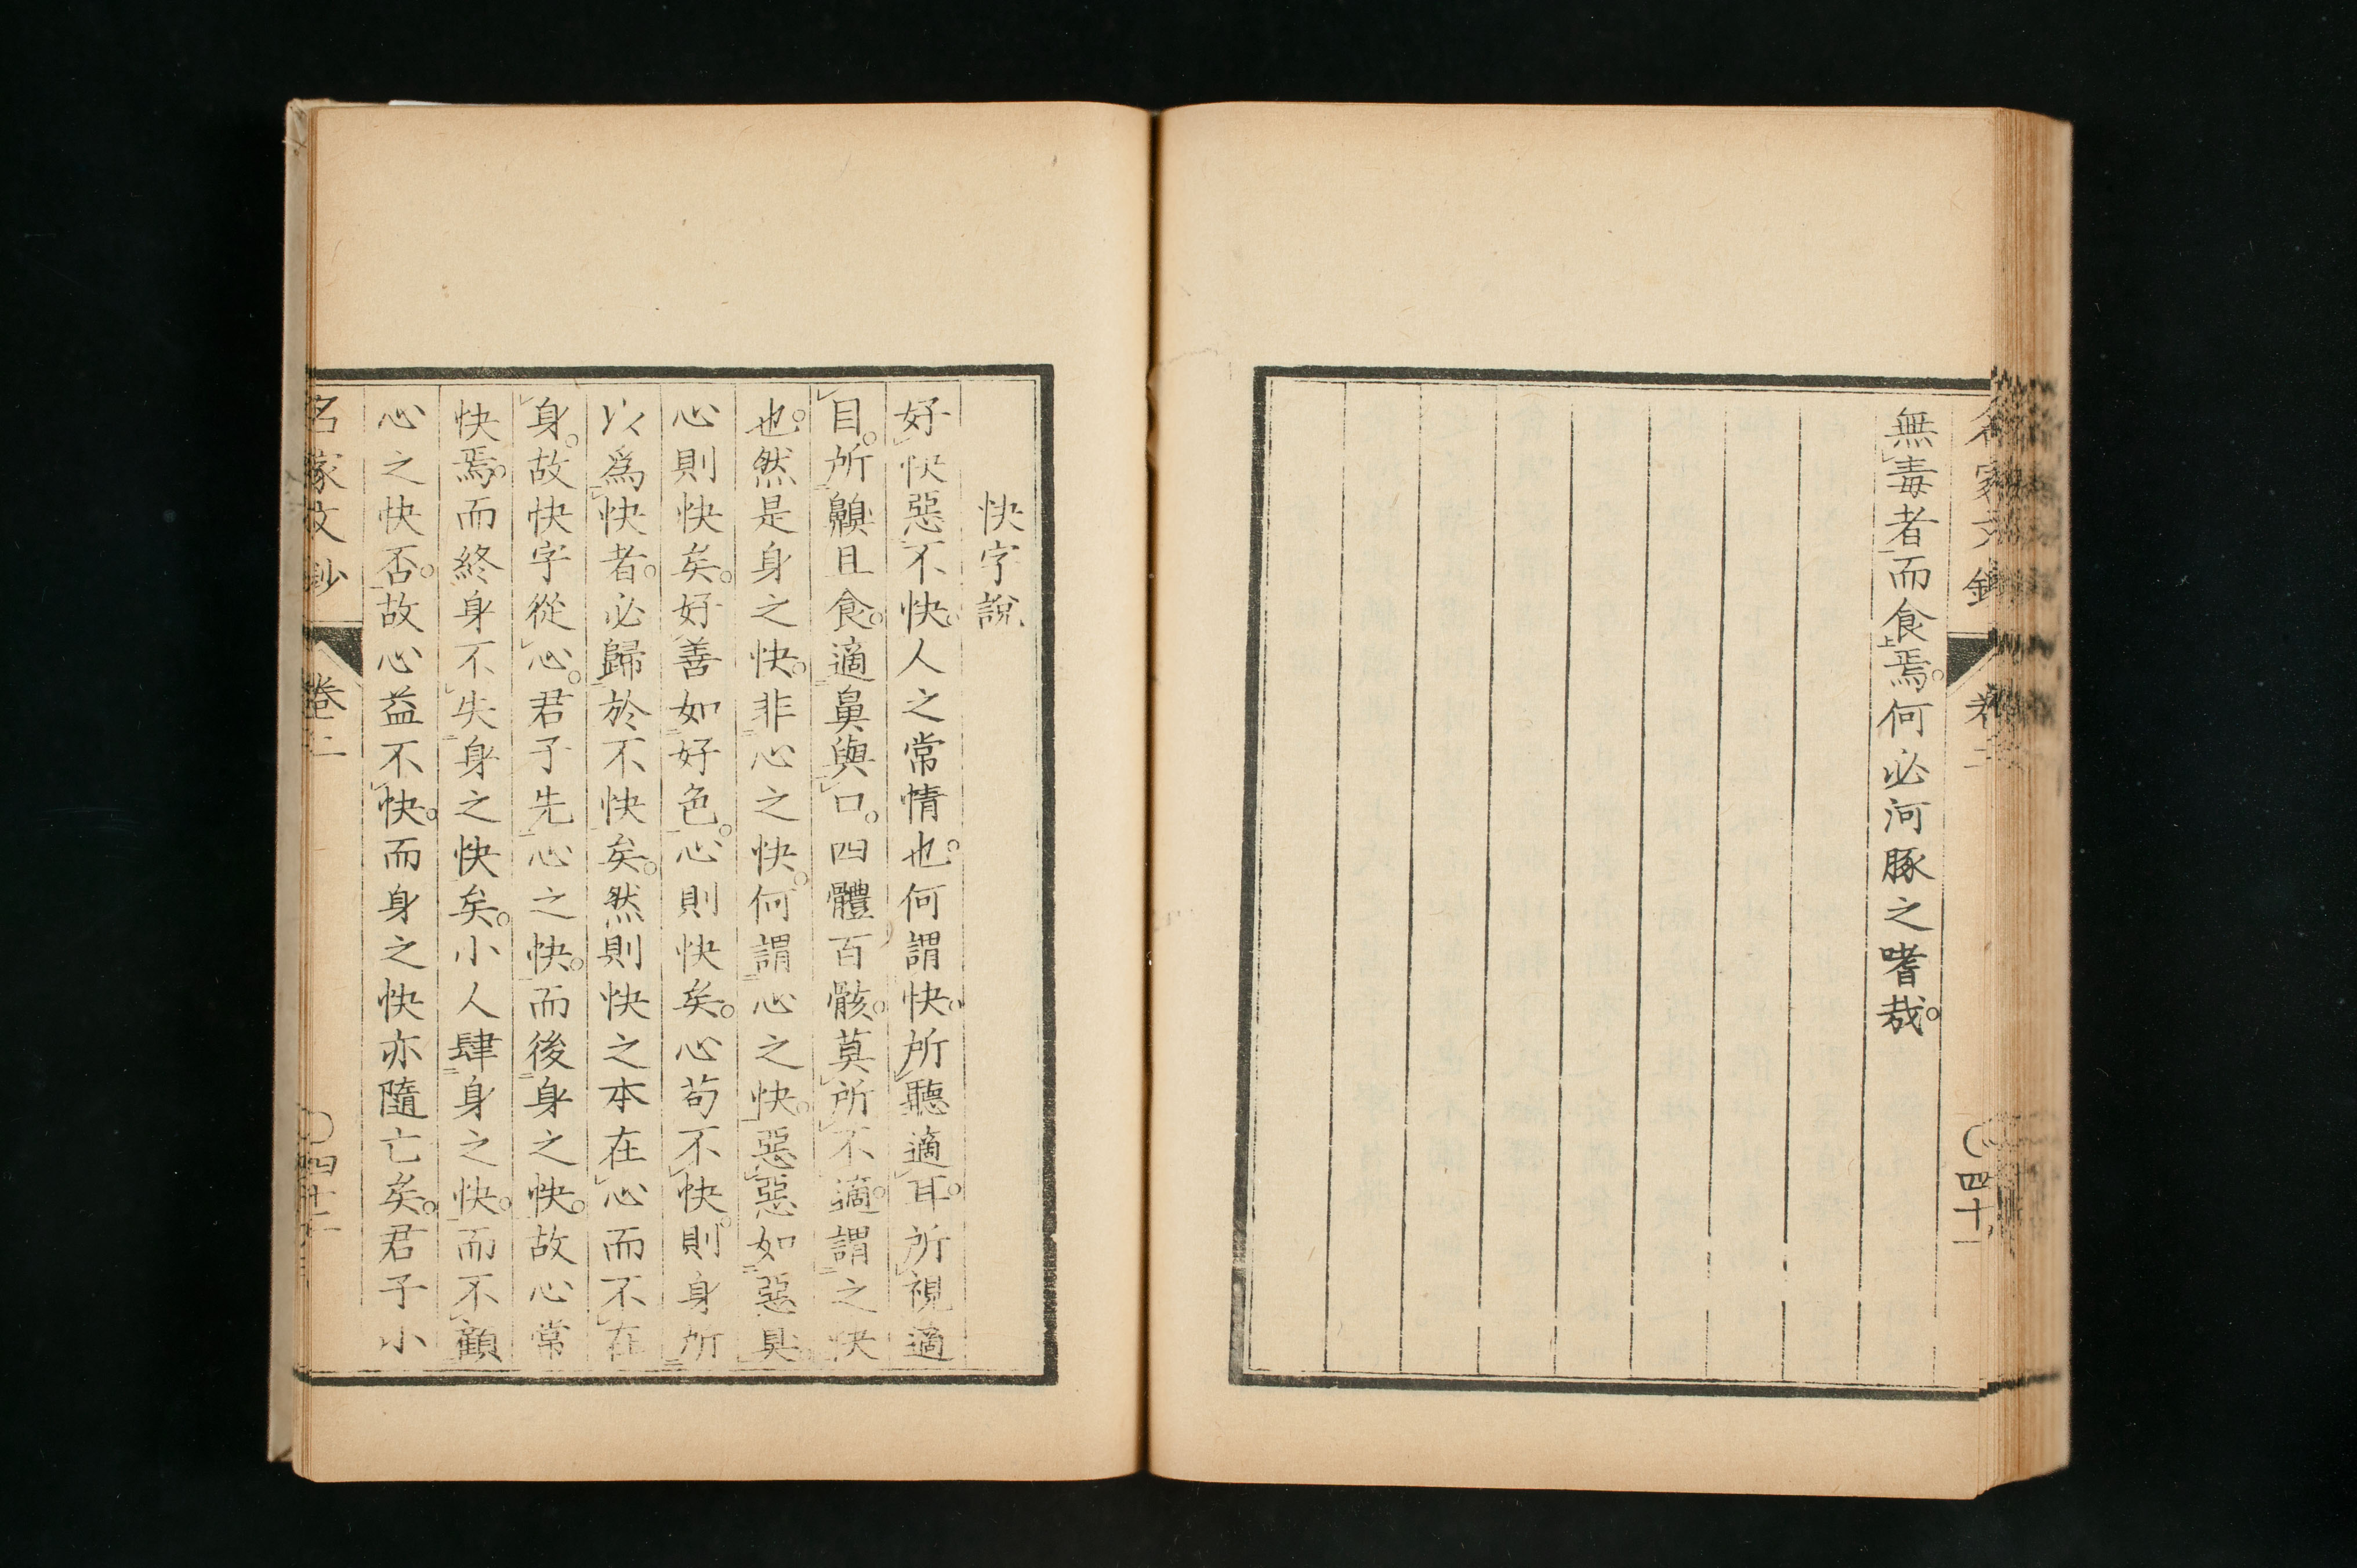 無毒者而食焉。何必河豚之嗜哉。
四十一
快字說
好快惡不快。人之常情也。何謂快。所聽適耳。所視適
目。所齅且食。適鼻與口。四體百骸。莫所不適。謂之快
也。然是身之快。非心之快。何謂心之快。惡惡如惡臭。
心則快矣。好善如好色。心則快矣。心苟不快。則身所
以爲快者。必歸於不快矣。然則快之本在心而不在
身。故快字從心。君子先心之快。而後身之快。故心常
快焉。而終身不失身之快矣。小人肆身之快。而不顧
心之快否。故心益不快。而身之快亦隨亡矣。君子小
名家文鈔
卷二